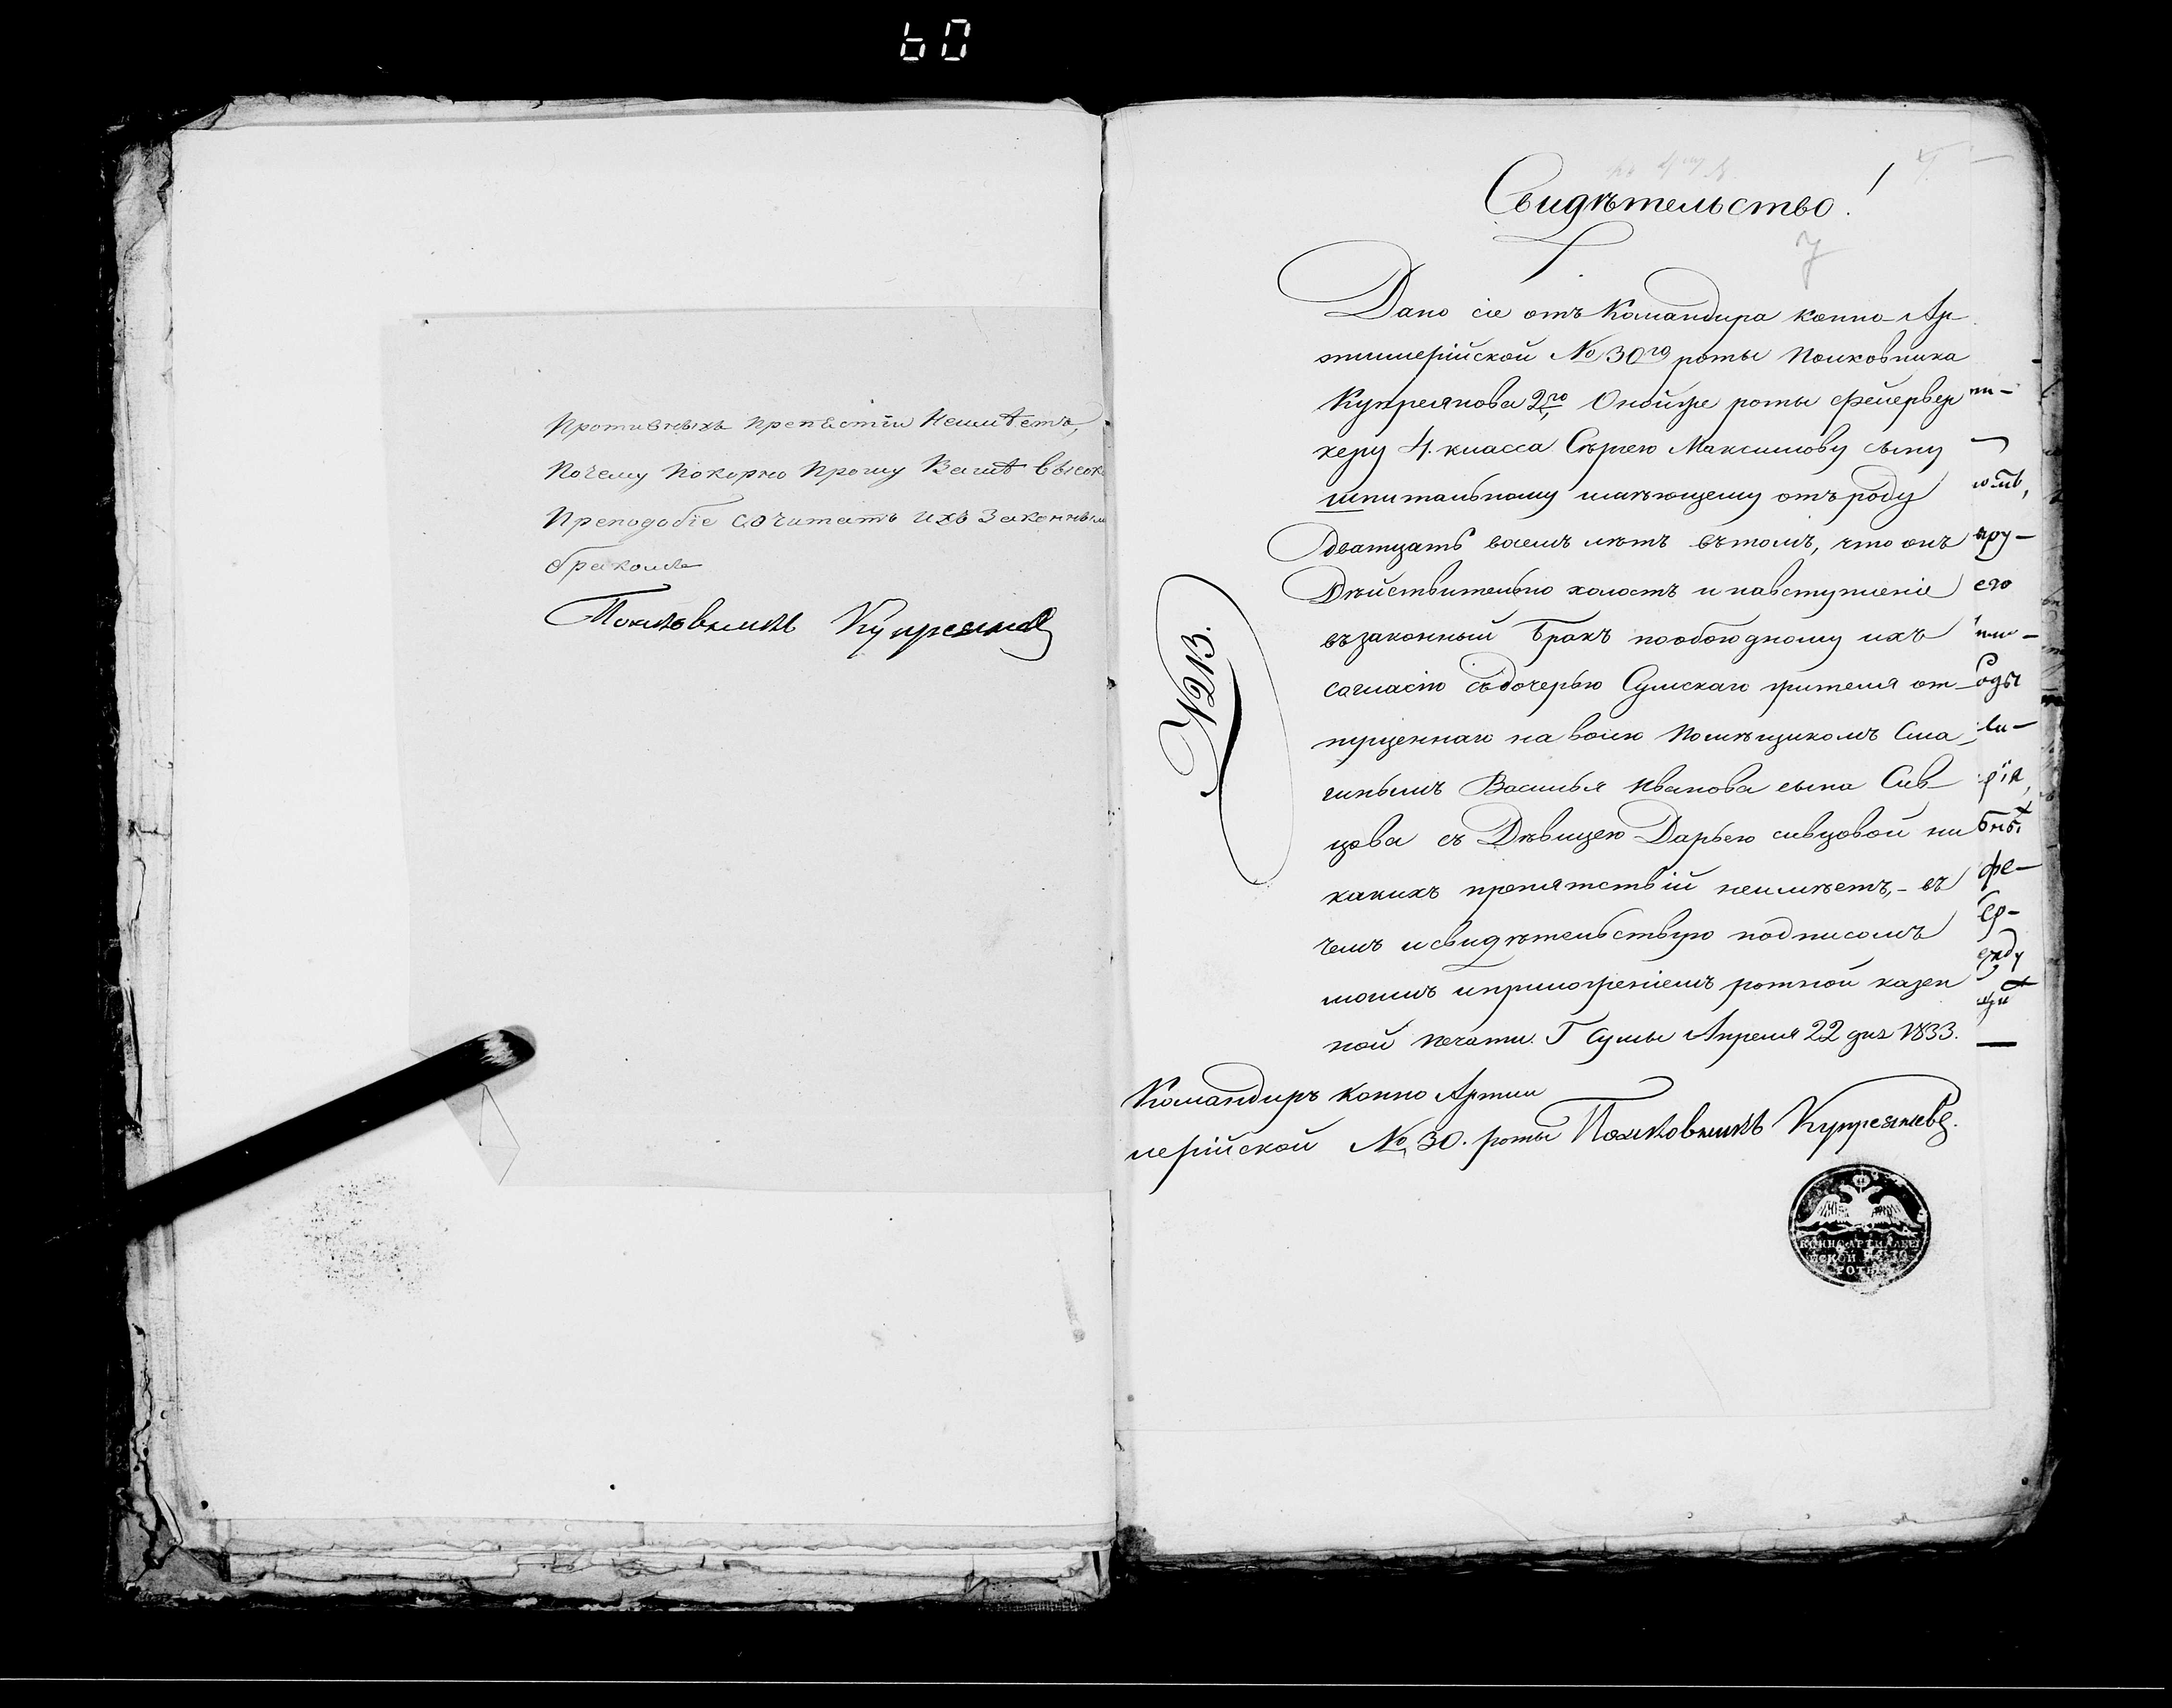 60
Противныхъ препѣстiи Неимѣетъ,
Почему покорно прошу Вашѣ Высоко
Преподобiе сочитать ихъ Законным
бракомъ
Полковникъ Купреяновъ
Свидѣтельство!
7
Дано сiе отъ Командира конно-Ар
тилерiйской № 30го роты Полковника
Купреянова 2го Оной же роты фейервер
керу 4. класса Сѣргею Максимову сыну
шпитальному имѣющему отъ роду
Дватцать восемъ лѣтъ вътомъ, что онъ
Дѣйствительно холостъ и навступленiе
въ законный Бракъ пообоюдному ихъ
согласiю съдочерью Сумскаго жителя от
пущеннаго на волю Помѣщикомъ Сма
гинымъ Василья Иванова сына Сив
цова съ Дѣвицею Дарьею сивцовой ни
какихъ препятствiй неимѣетъ,- въ
чемъ исвидѣтельствую подписомъ
моимъ иприложенiемъ ротной казен
ной печати. Г Сумы Апреля 22 дня 1833.
№213.
Командиръ конно Артил
лерiйской № 30. роты Полковникъ Купреяновъ
КОННО АРТИЛЛЕРI
ЙСКОЙ № 30
РОТЫ